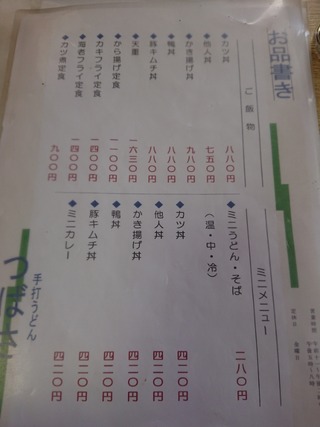 お品書き
ご飯物
◆カツ丼 八八〇円
◆他人丼 七五〇円
◆かき揚げ丼 九八〇円
◆鴨丼 八八〇円
◆豚キムチ丼 八八〇円
◆天重 一六三〇円
◆から揚げ定食 一一〇〇円
◆カキフライ定食 一四〇〇円
◆海老フライ定食 一四〇〇円
◆カツ煮定食 九〇〇円
営業時間
定休日
ミニメニュー
◆ミニうどん・そば
(温・中・冷) 二八〇円
◆カツ丼 四二〇円
◆他人丼 四二〇円
◆かき揚げ丼 四二〇円
◆鴨丼 四二〇円
◆豚キムチ丼 四二〇円
◆ミニカレー 四二〇円
手打うどん